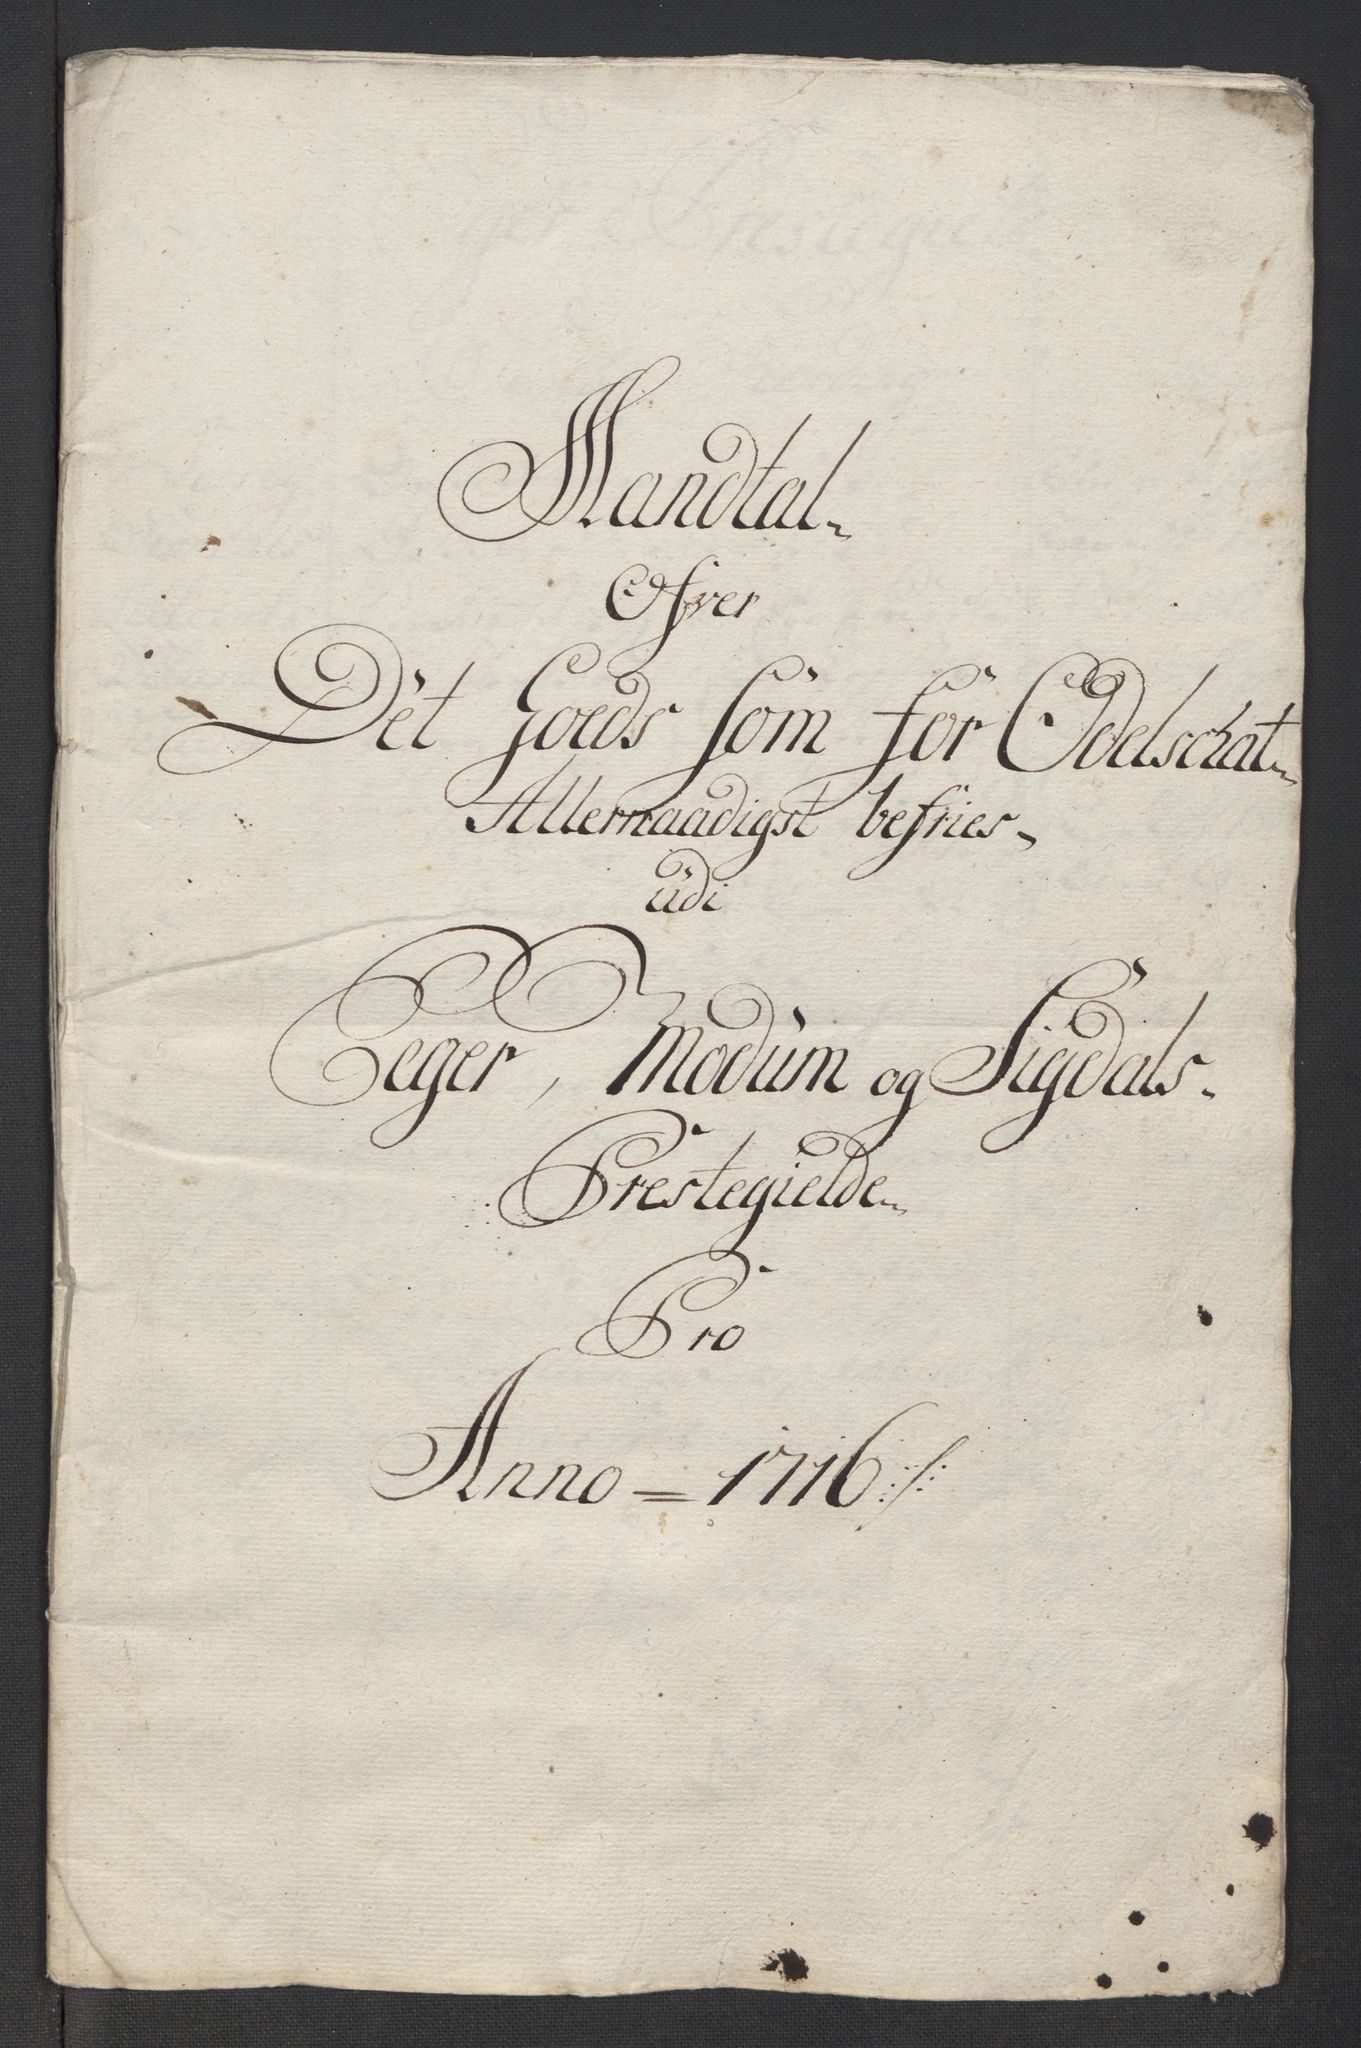 Mandtal
Ofver
Det Goeds som for Odelschat
Allernaadigst befries
udi
Eeger, Modum og Sigdals
Prestegielde
Pro
Anno = 1716